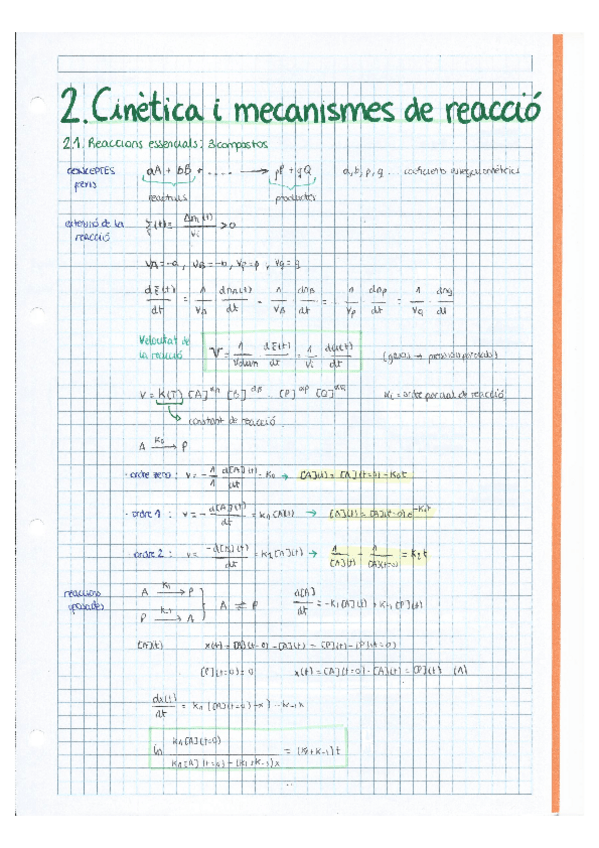 2. Cinètica i mecanismes de reacció
2.1. Reaccions essencials: 3 compostos
CONCEPTES previs aA + bB + .... → pP + qQ a, b, p, q ... coeficients estequiomètrics
reactius productes
extensió de la reacció ξ(t) = Δni(t)/νi > 0
νA = -a, νB = -b, νP = p, νQ = q
dξ(t)/dt = 1/νA dnA(t)/dt = 1/νB dnB/dt = 1/νP dnP/dt = 1/νQ dnQ/dt
Velocitat de la reacció V = 1/Volum · dξ(t)/dt = 1/νi d[i](t)/dt (gasos → pressions parcials)
V = K(T) [A]^αA [B]^αB ... [P]^αP [Q]^αQ αi = ordre parcial de reacció
constant de reacció
A –K0→ P
· ordre zero: v = -1/1 d[A](t)/dt = K0 → [A](t) = [A](t=0) - K0t
· ordre 1: v = -d[A](t)/dt = K1[A](t) → [A](t) = [A](t=0)·e^-K1t
· ordre 2: v = -d[A](t)/dt = K2[A](t) → 1/[A](t) - 1/[A](t=0) = K2t
reaccions oposades A –K1→ P
P –K-1→ A } A ⇌ P d[A]/dt = -K1[A](t) + K-1[P](t)
[A](t) x(t) = [A](t=0) - [A](t) = [P](t) - [P](t=0)
[P](t=0) = 0 x(t) = [A](t=0) - [A](t) = [P](t) (1)
dx(t)/dt = K1([A](t=0) - x) - K-1x
ln K1[A](t=0) / K1[A](t=0) - (K1+K-1)x = (K1+K-1)t